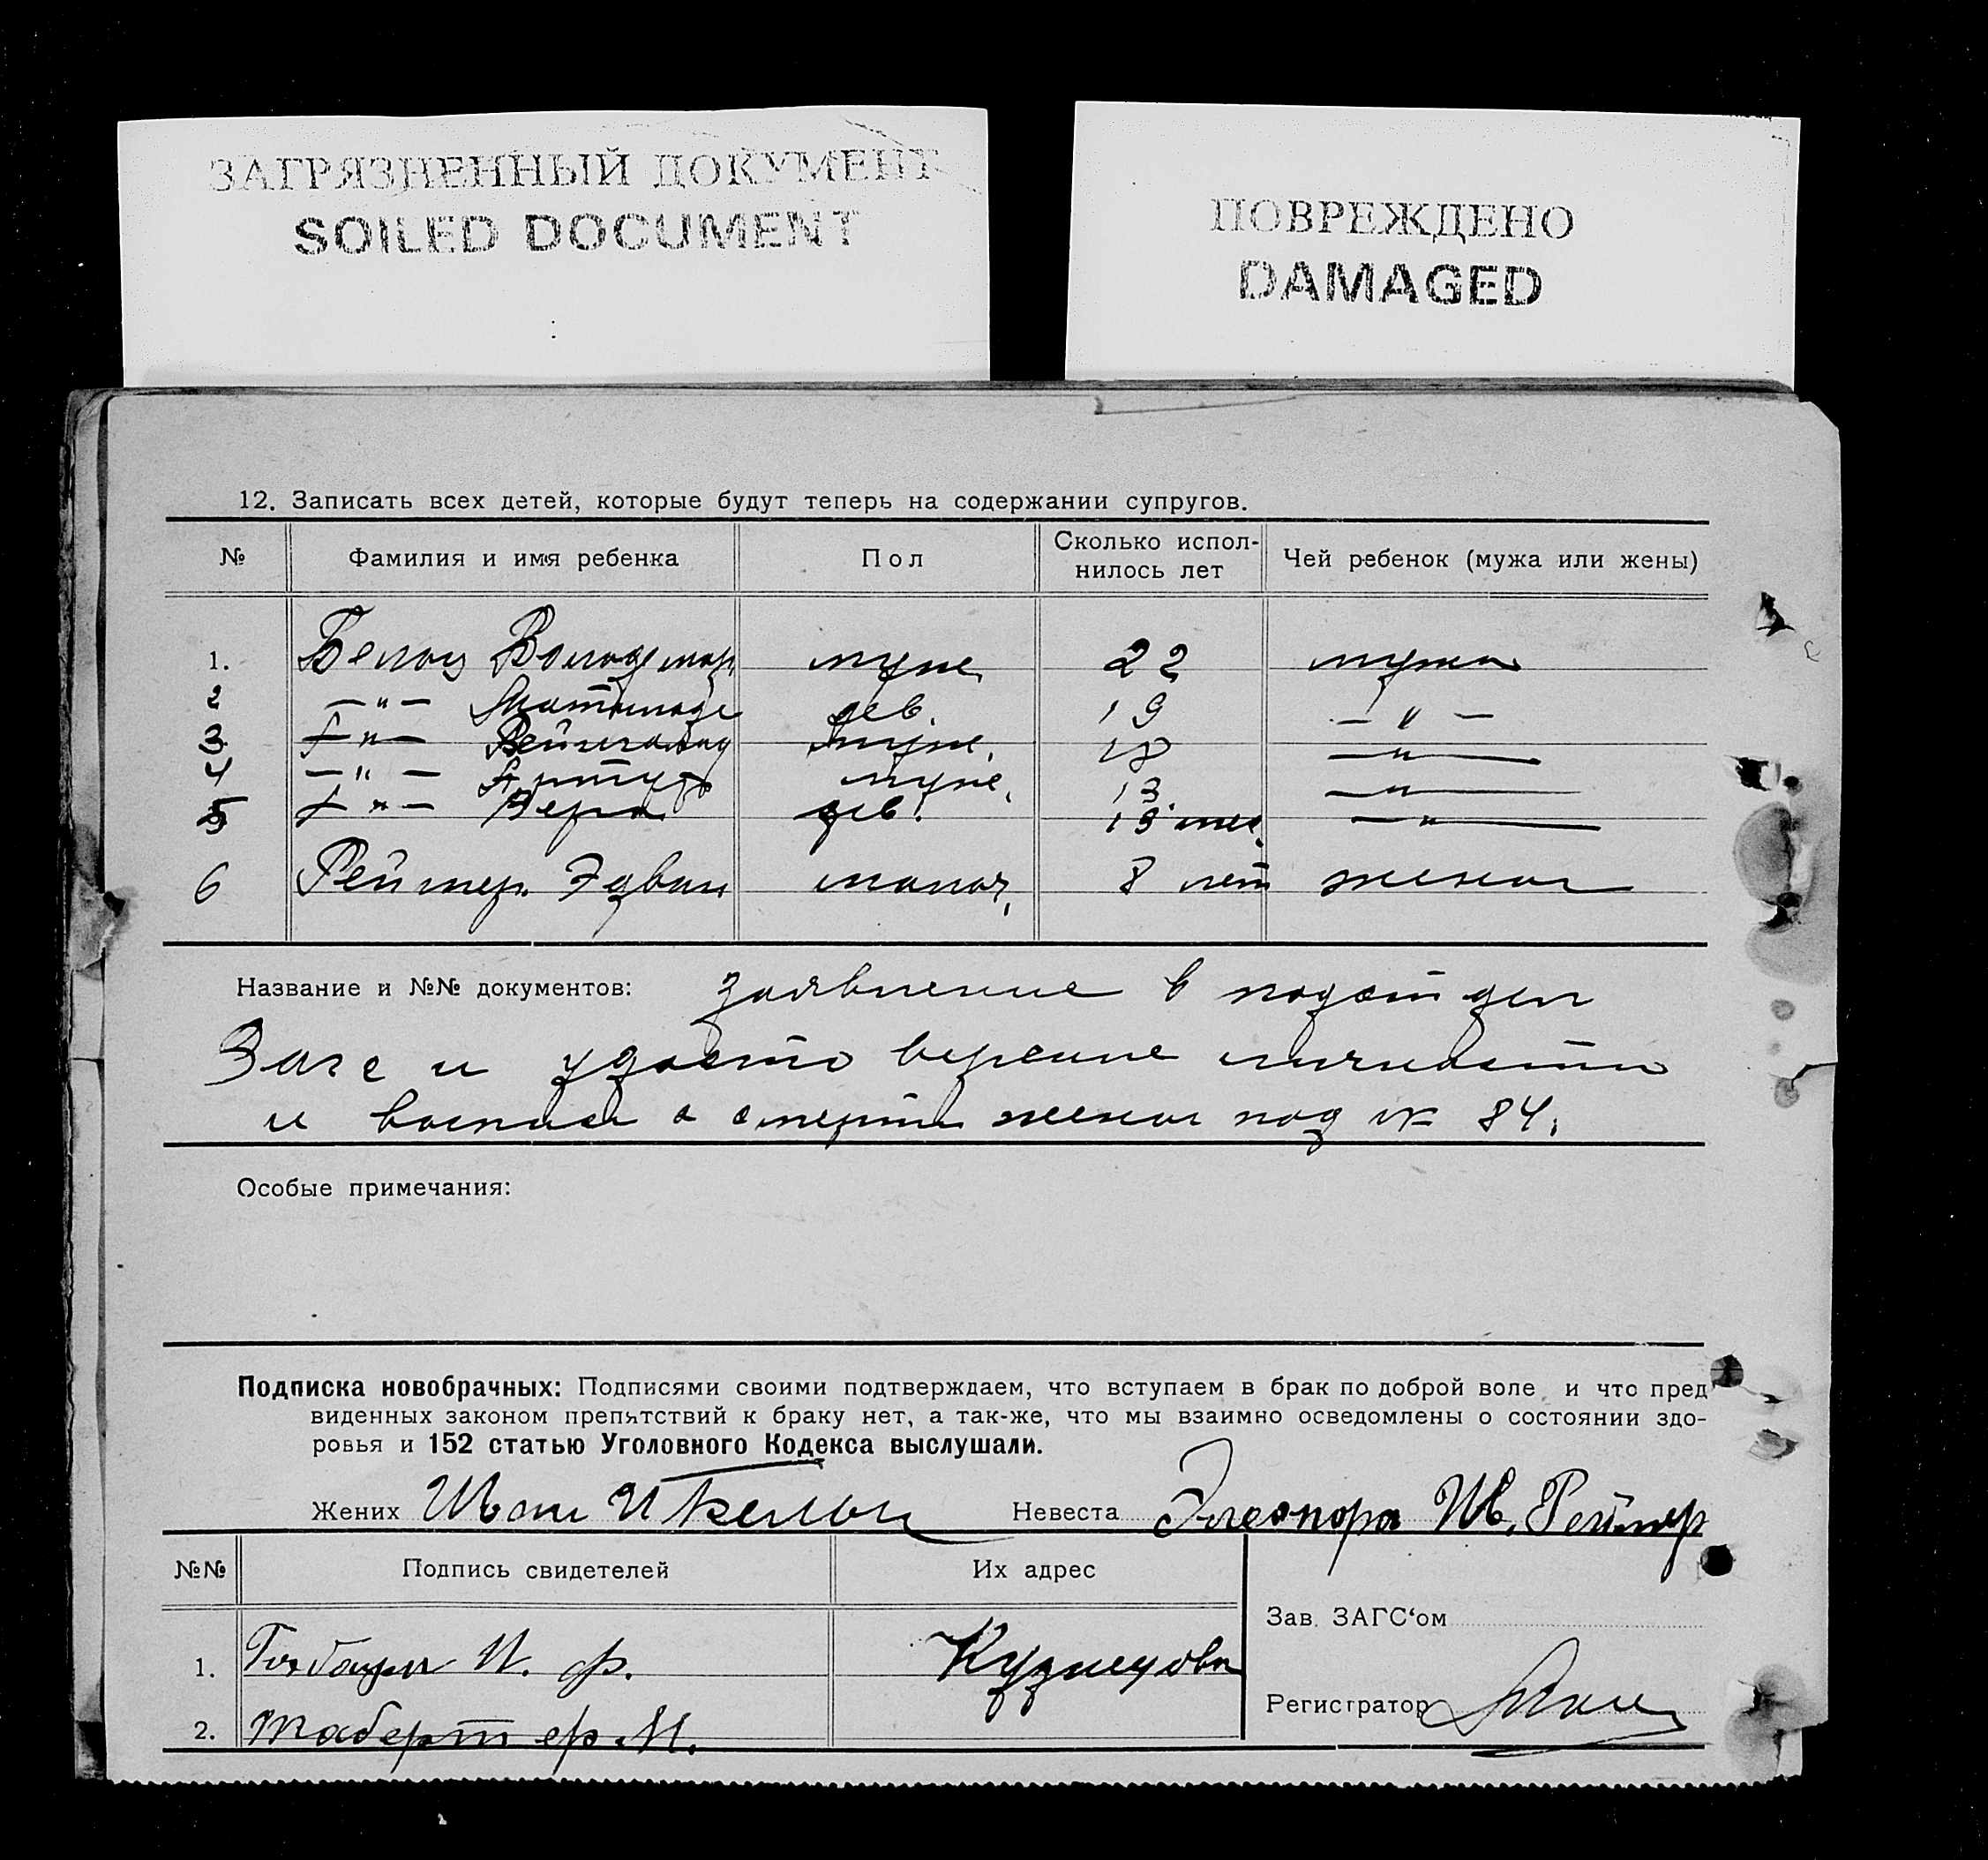 ЗАГРЯЗНЕННЫЙ ДОКУМЕНТ
SOILED DOCUMENT
ПОВРЕЖДЕНО
DAMAGED
12. Записать всех детей, которые будут теперь на содержании супругов.
№ Фамилия и имя ребенка Пол Сколько испол-нилось лет Чей ребенок (мужа или жены)
1. муж. 22 мужа
2 —"— дев. 19 —"—
3 —"— муж. —"—
4 —"— Артур муж. 13. —"—
5 —"— Вера дев. мес. —"—
6 Реймер 8 лет жены
Название и №№ документов: заявление в подотдел
Загс и удостоверение личности
и выписи о смерти жены под № 84.
Особые примечания:
Подписка новобрачных: Подписями своими подтверждаем, что вступаем в брак по доброй воле и что пред
виденных законом препятствий к браку нет, а так-же, что мы взаимно осведомлены о состоянии здо-
ровья и 152 статью Уголовного Кодекса выслушали.
Жених Иван И Невеста Элеонора Ив. Реймер
№№ Подпись свидетелей Их адрес
Зав. ЗАГС‘ом
1. И. ф. Кузнецовка
Регистратор
2. Таберт ф. И.